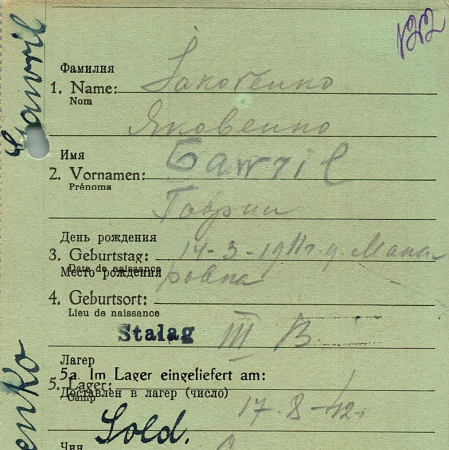 1212
Gawril
Фамилия
1. Name: Jakowenko
Nom
Яковенко
Имя
2. Vornamen: Gawril
Prénoms
Гаврил
День рождения
3. Geburtstag: 14-3-1911г. д. Мака-
Date de naissance
Место рождения ровка
4. Geburtsort:
Lieu de naissance
Stalag III B.
Лагер
5a. Im Lager eingeliefert am:
5. Lager:
Доставлен в лагер (число)
Camp
17-8-42.
enko
Sold.
Чин